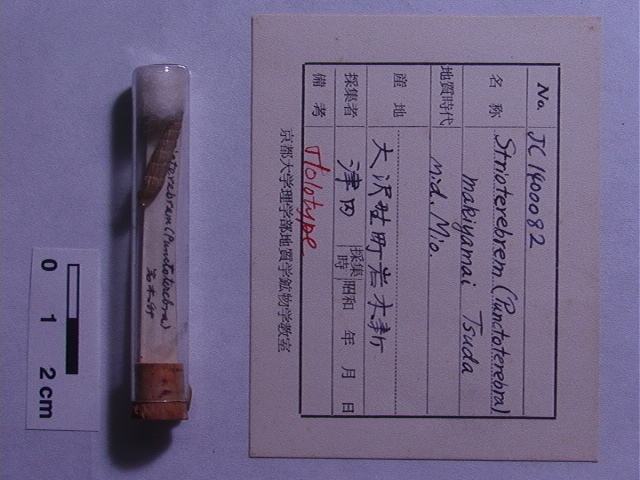 No. JC1400082
名称 Strioterebrem (Punctoterebra)
makiyamai Tsuda
地質時代 mid. Mio.
産地 大沢野町岩木新
採集者 津田 採集時 昭和 年 月 日
備考 Holotype
京都大学理学部地質学鉱物学教室
terebrem (Punctoterebra)
0 1 2 cm